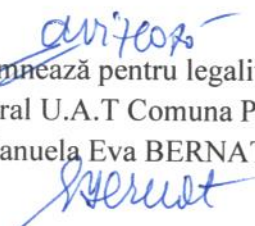 avizează
mnează pentru legalit
ral U.A.T Comuna P
anuela Eva BERNAT